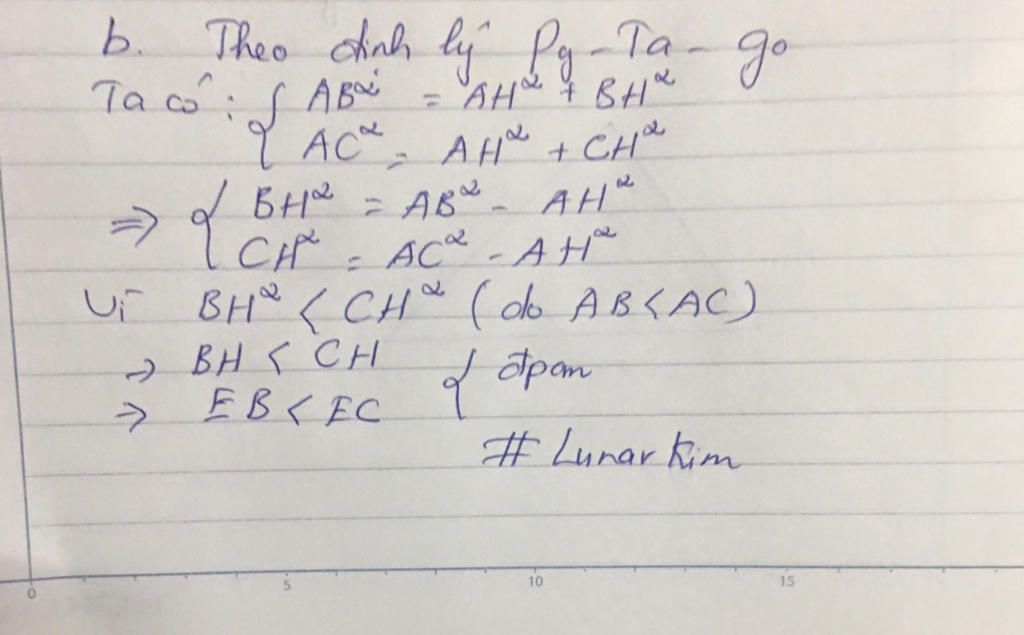 b. Theo định lý Py-Ta-go
Ta có: { AB² = AH² + BH²
AC² = AH² + CH²
=> { BH² = AB² - AH²
CH² = AC² - AH²
Vì BH² < CH² (do AB < AC)
=> BH < CH } đpcm
=> EB < EC
# Lunar Kim
0 5 10 15